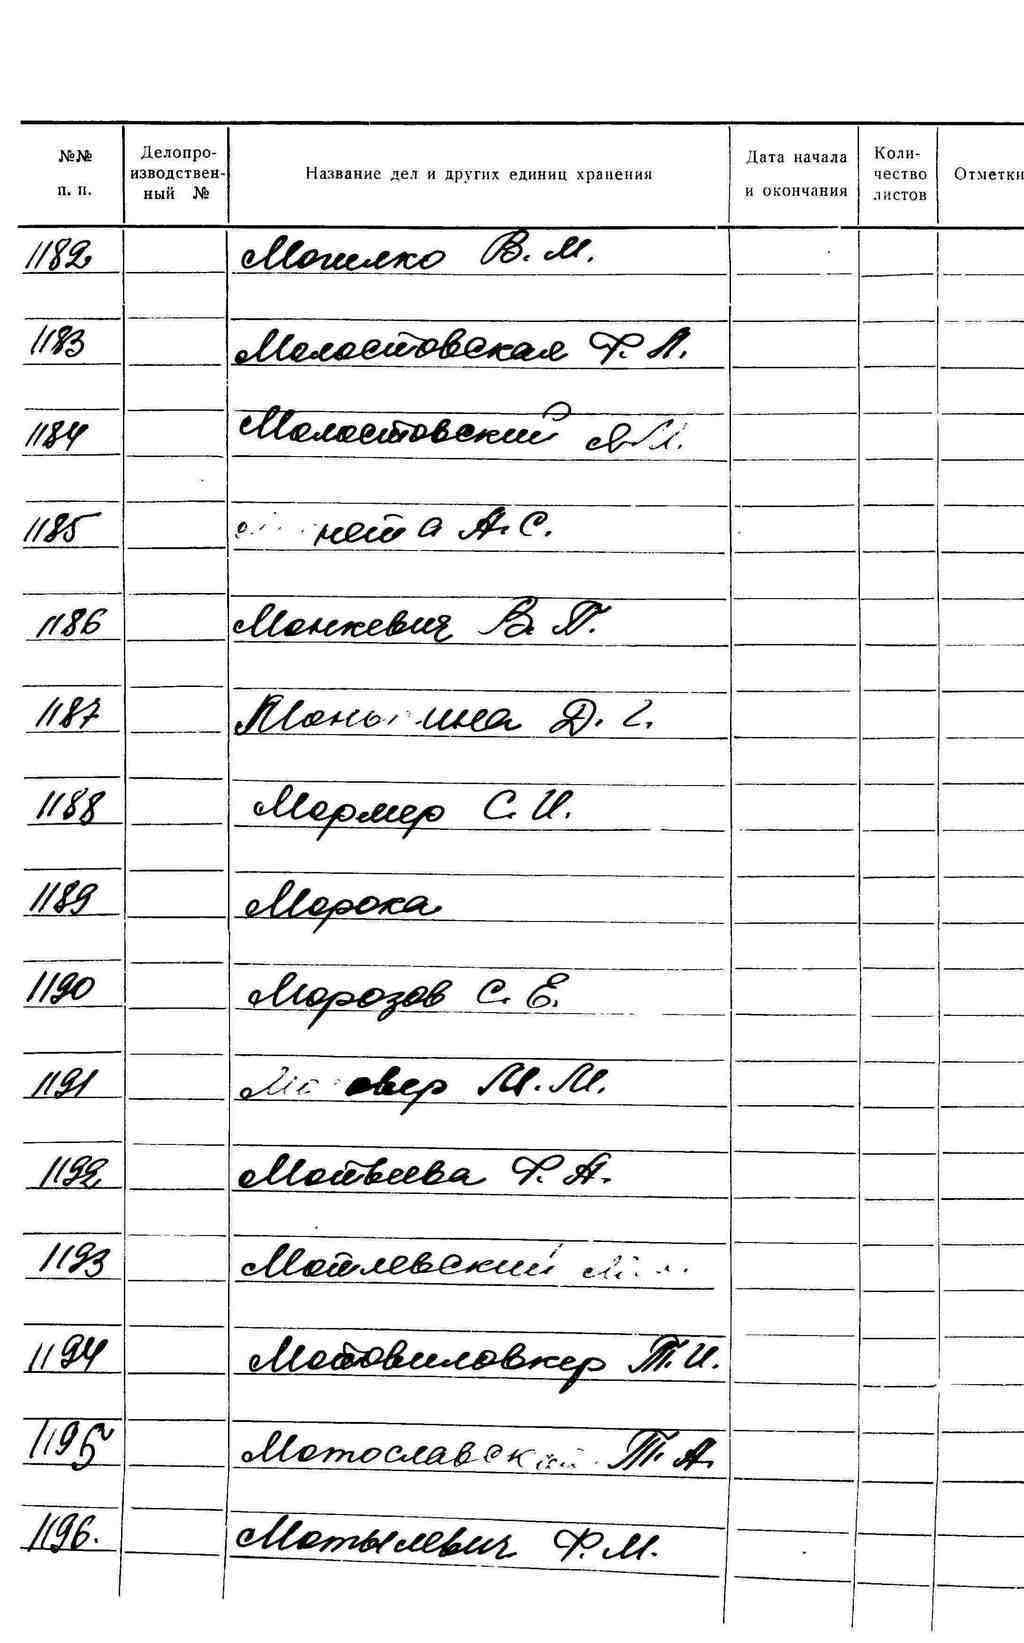 №№ п. п. Делопроизводственный № Название дел и других единиц хранения Дата начала и окончания Количество листов Отметки
1182 Могилко В. М.
1183 Моластовская Ф. Л.
1184 Моластовский
1185 А. С.
1186 Монкевич В. П.
1187 Д.
1188 Мормер С. И.
1189 Морока
1190 Морозов С. Е.
1191 М. М.
1192 Мотвеева Ф. А.
1193 Мотлевский
1194 Мотовиловкер Т. И.
1195 Мотославский Т. А.
1196. Мотылевич Ф. М.